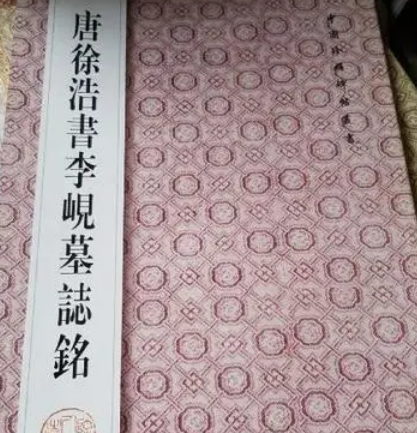 唐徐浩書李峴墓誌銘
中國珍稀碑帖叢書